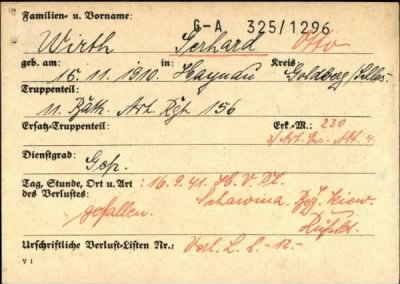 Familien- u. Vorname:
G-A 325/1296
Wirth Gerhard Otto
geb. am: in: Kreis
16. 11. 1910. Haynau Goldberg/Schles.
Truppenteil:
11. Bttr. Art. Rgt. 156
Ersatz-Truppenteil: Erk.-M.: 230
Art. Ers. Abt. 4.
Dienstgrad: Gefr.
Tag, Stunde, Ort u. Art : 16. 9. 41. H. V. Pl.
des Verlustes:
gefallen. Kiew.
Urschriftliche Verlust-Listen Nr.: Verl. L. 8. -12-
V 1